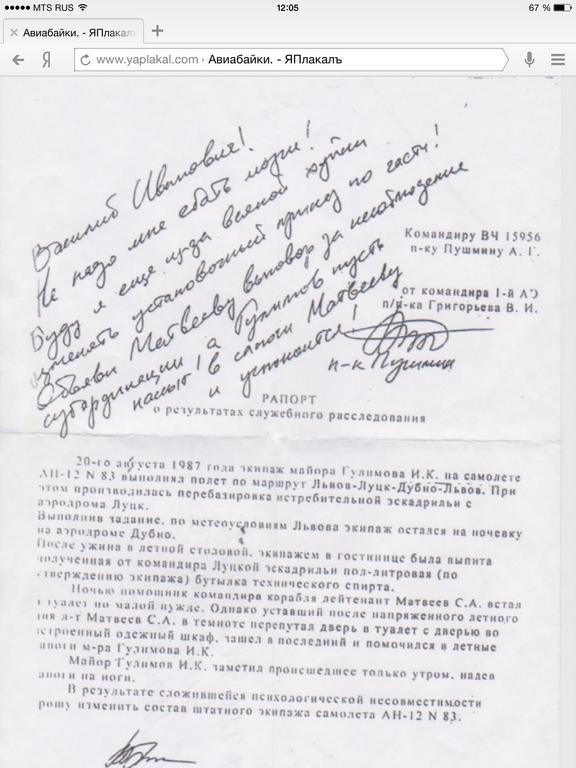 MTS RUS 12:05 67 %
Авиабайки. - ЯПлакалъ
Я www.yaplakal.com › Авиабайки. - ЯПлакалъ
Василий Иванович!
Не надо мне ебать мозги!
Буду я еще из за всякой хуйни
изменять установочный приказ по части!
Объяви Матвееву выговор за несоблюдение
субординации а Гулимов пусть
нассыт в сапоги Матвееву
и успокоится!
п-к Пушмин
Командиру ВЧ 15956
п-ку Пушмину А. Г.
от командира 1-й АЭ
п/п-ка Григорьева В. И.
РАПОРТ
о результатах служебного расследования
20-го августа 1987 года экипаж майора Гулимова И.К. на самолете
АН-12 N 83 выполнял полет по маршрут Львов-Луцк-Дубно-Львов. При
этом производилась перебазировка истребительной эскадрильи с
аэродрома Луцк.
Выполнив задание, по метеоусловиям Львова экипаж остался на ночевку
на аэродроме Дубно.
После ужина в летной столовой, экипажем в гостинице была выпита
полученная от командира Луцкой эскадрильи пол-литровая (по
тверждению экипажа) бутылка технического спирта.
Ночью помощник командира корабля лейтенант Матвеев С.А. встал
в туалет по малой нужде. Однако уставший после напряженного летного
ня л-т Матвеев С.А. в темноте перепутал дверь в туалет с дверью во
строенный одежный шкаф, зашел в последний и помочился в летные
апоги м-ра Гулимова И.К.
Майор Гулимов И.К. заметил происшедшее только утром, надев
апоги на ноги.
В результате сложившейся психологической несовместимости
рошу изменить состав штатного экипажа самолета АН-12 N 83.